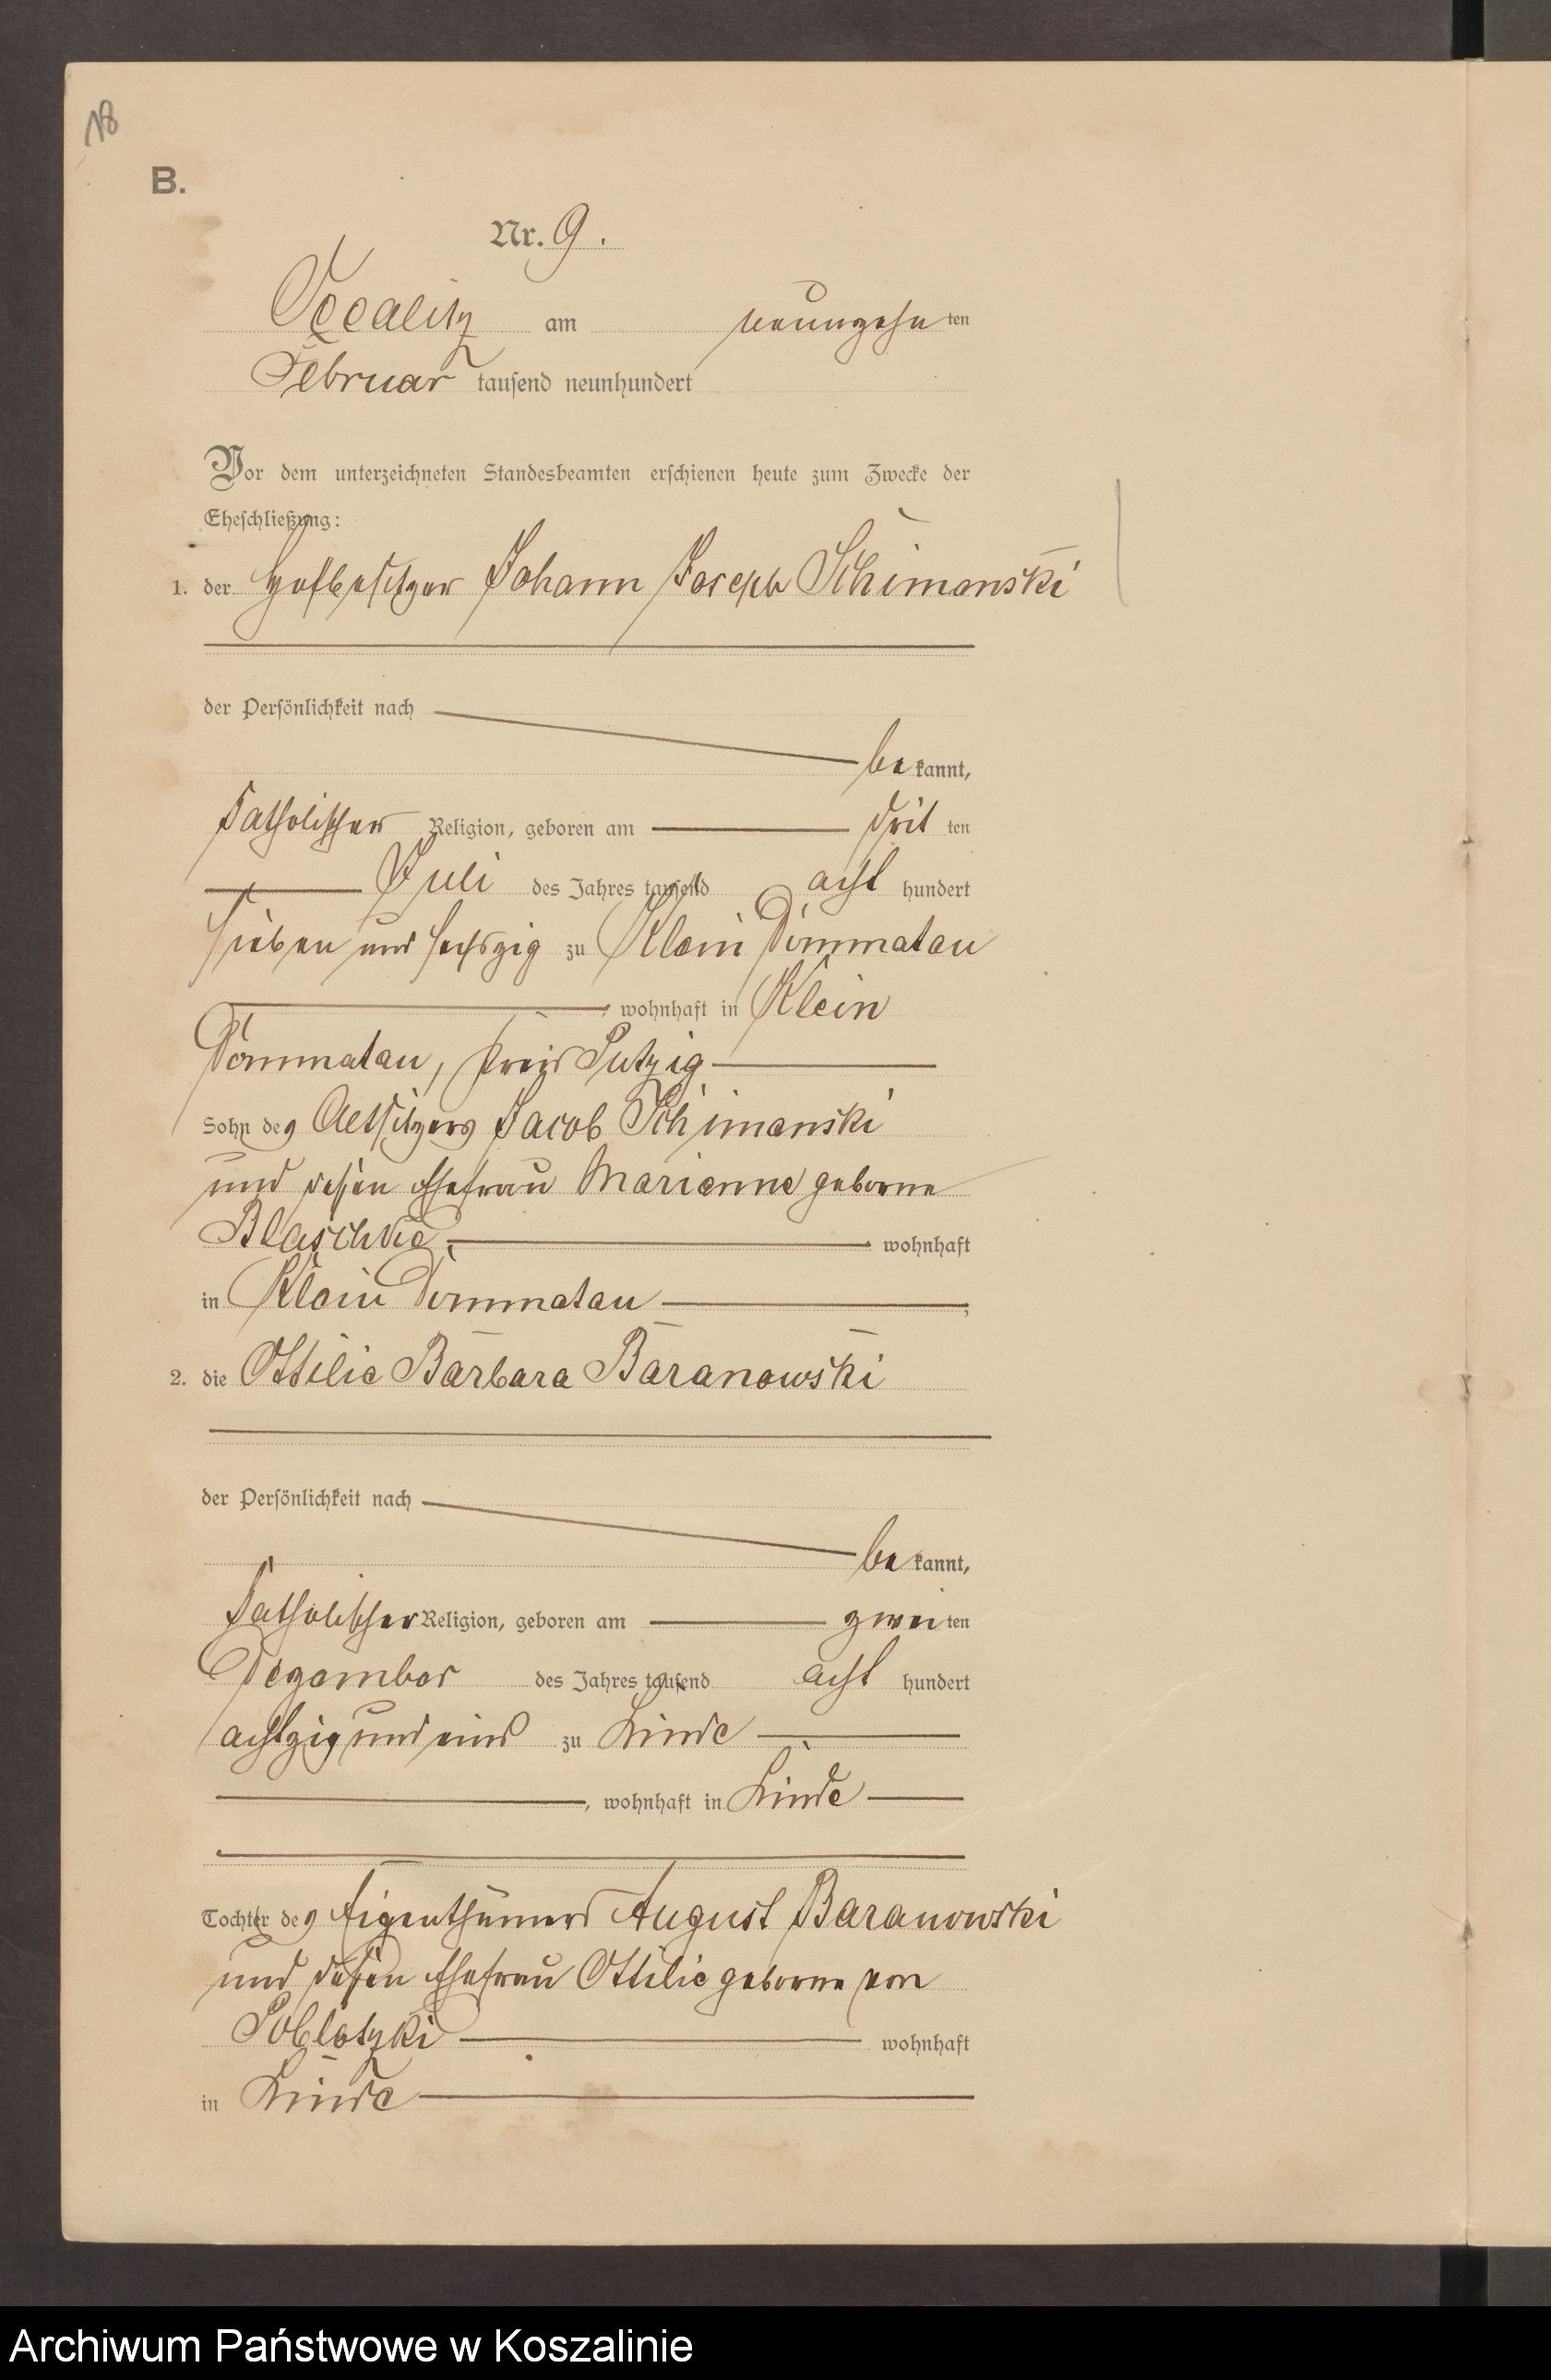 18
B.
Nr. 9.
Occalitz am neunzehn ten
Februar tausend neunhundert
Vor dem unterzeichneten Standesbeamten erschienen heute zum Zwecke der
Eheschließung:
1. der Hofbesitzer Johann Joseph Schimanski
der Persönlichkeit nach
be kannt,
katholischer Religion, geboren am drit ten
Juli des Jahres tausend acht hundert
sieben und sechszig zu Klein Dommatau
, wohnhaft in Klein
Dommatau, Kreis Putzig
Sohn des Altsitzers Jacob Schimanski
und dessen Ehefrau Marianne geborne
Blaschke, wohnhaft
in Klein Dommatau ,
2. die Ottilie Barbara Baranowski
der Persönlichkeit nach
be kannt,
katholischer Religion, geboren am zwei ten
Dezember des Jahres tausend acht hundert
achtzig und eins zu Linde
, wohnhaft in Linde
Tochter des Eigenthümers August Baranowski
und dessen Ehefrau Ottilie geborne von
Poblotzki wohnhaft
in Linde
Archiwum Państwowe w Koszalinie